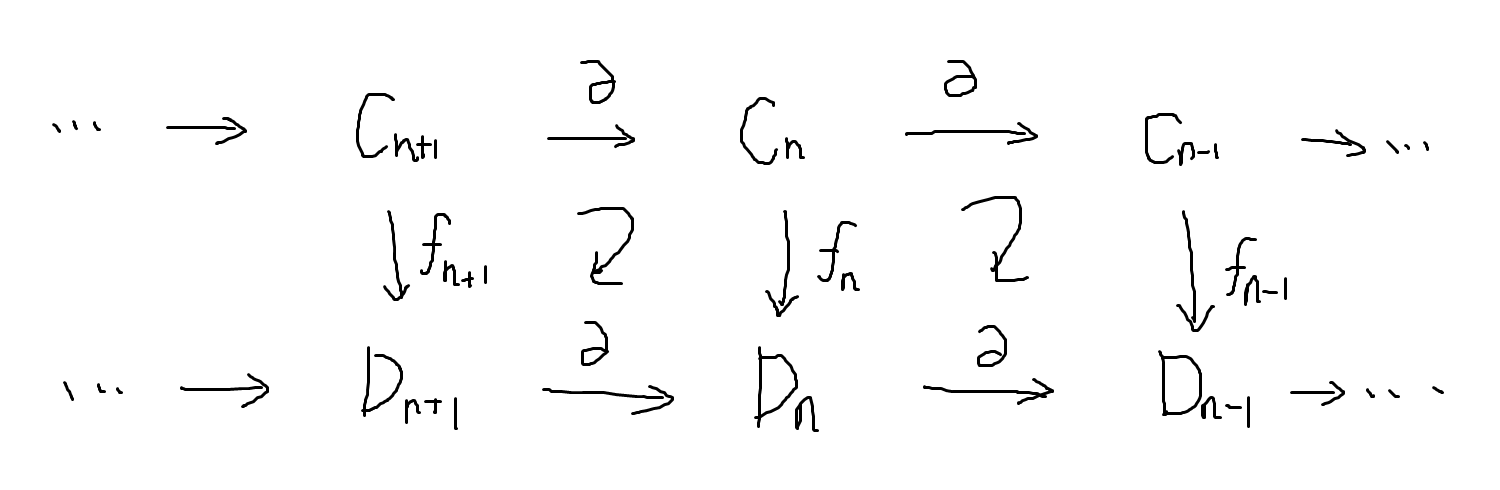 ∂ ∂
... → C_{n+1} → C_n → C_{n-1} → ...
↓ f_{n+1} ↓ f_n ↓ f_{n-1}
∂ ∂
... → D_{n+1} → D_n → D_{n-1} → ...